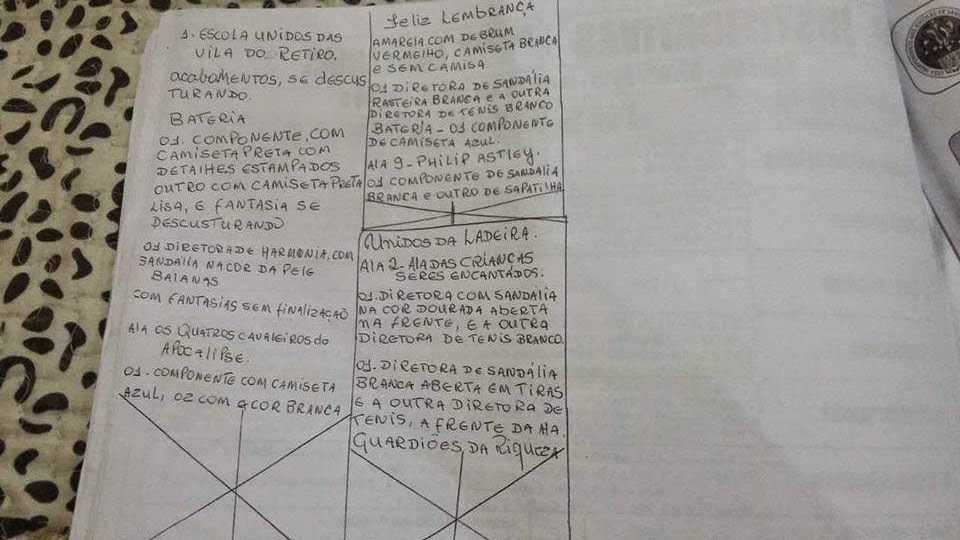 1. ESCOLA UNIDOS DAS
VILA DO RETIRO.
acabamentos, SE DESCUS
TURANDO.
BATERIA
01. COMPONENTE COM
CAMISETA PRETA COM
DETALHES ESTAMPADOS
OUTRO COM CAMISETA PRETA
LISA, E FANTASIA SE
DESCUSTURANDO
01 DIRETORA DE HARMONIA COM
SANDÁLIA NA COR DA PELE
BAIANAS
COM FANTASIAS SEM FINALIZAÇÃO
AlA OS QUATROS CAVALEIROS do
APOCALIPSE.
01. COMPONENTE COM CAMISETA
AZUL, 02 COM a COR BRANCA
Feliz LEMBRANÇA
AMARELA COM DEBRUM
VERMELHO, CAMISETA BRANCA
E SEM CAMISA
01 DIRETORA DE SANDÁLIA
RASTEIRA BRANCA E A OUTRA
DIRETORA DE TENIS BRANCO
BATERIA - 01 COMPONENTE
DE CAMISETA AZUL.
AlA 9 - PHILIP ASTLEY.
01 COMPONENTE DE SANDALIA
BRANCA E OUTRO DE SAPATILHA
UNIDOS DA LADEIRA.
AlA 2 - ALA DAS CRIANÇAS
SERES ENCANTADOS.
01. DIRETORA COM SANDÁLIA
NA COR DOURADA ABERTA
NA FRENTE, E A OUTRA
DIRETORA DE TENIS BRANCO.
01. DIRETORA DE SANDÁLIA
BRANCA ABERTA EM TIRAS
E A OUTRA DIRETORA DE
TENIS, A FRENTE DA ALA.
GUARDIÕES DA RIQUEZA